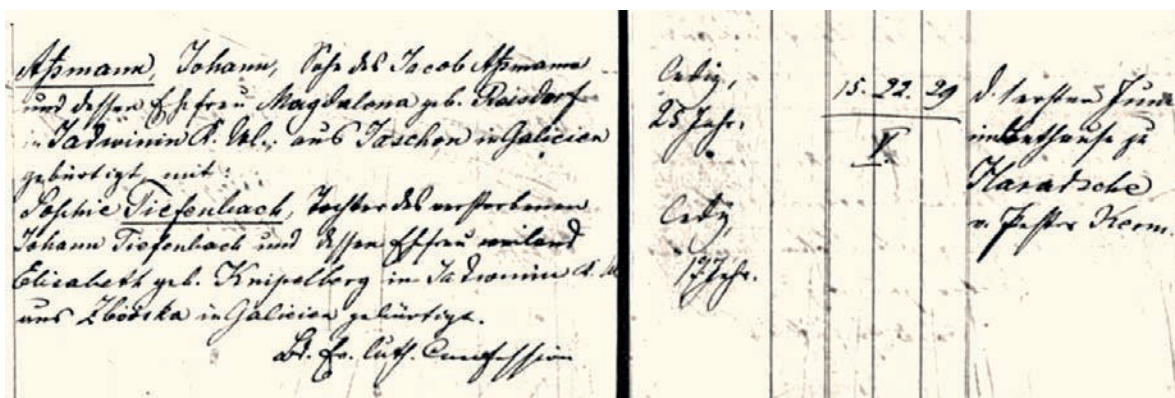 Aßmann, Johann, Sohn des Jacob Aßmann
und dessen Ehefrau Magdalena geb. Reisdorf
in Jadwinin K. Wl., aus Jaschon in Galicien
gebürtigt, mit:
Sophie Tiefenbach, Tochter des verstorbenen
Johann Tiefenbach und dessen Ehefrau weiland
Elisabeth geb. Knipelberg in Jadwinin K. Wl.
aus Zboiska in Galicien gebürtigt.
Bd. Ev. Luth. Confession
ledig,
25 Jahr.
ledig,
17 Jahr.
15. 22. 29
V.
d. ersten Juni
im Bethause zu
Haratsche
v. Pastor Kerm.